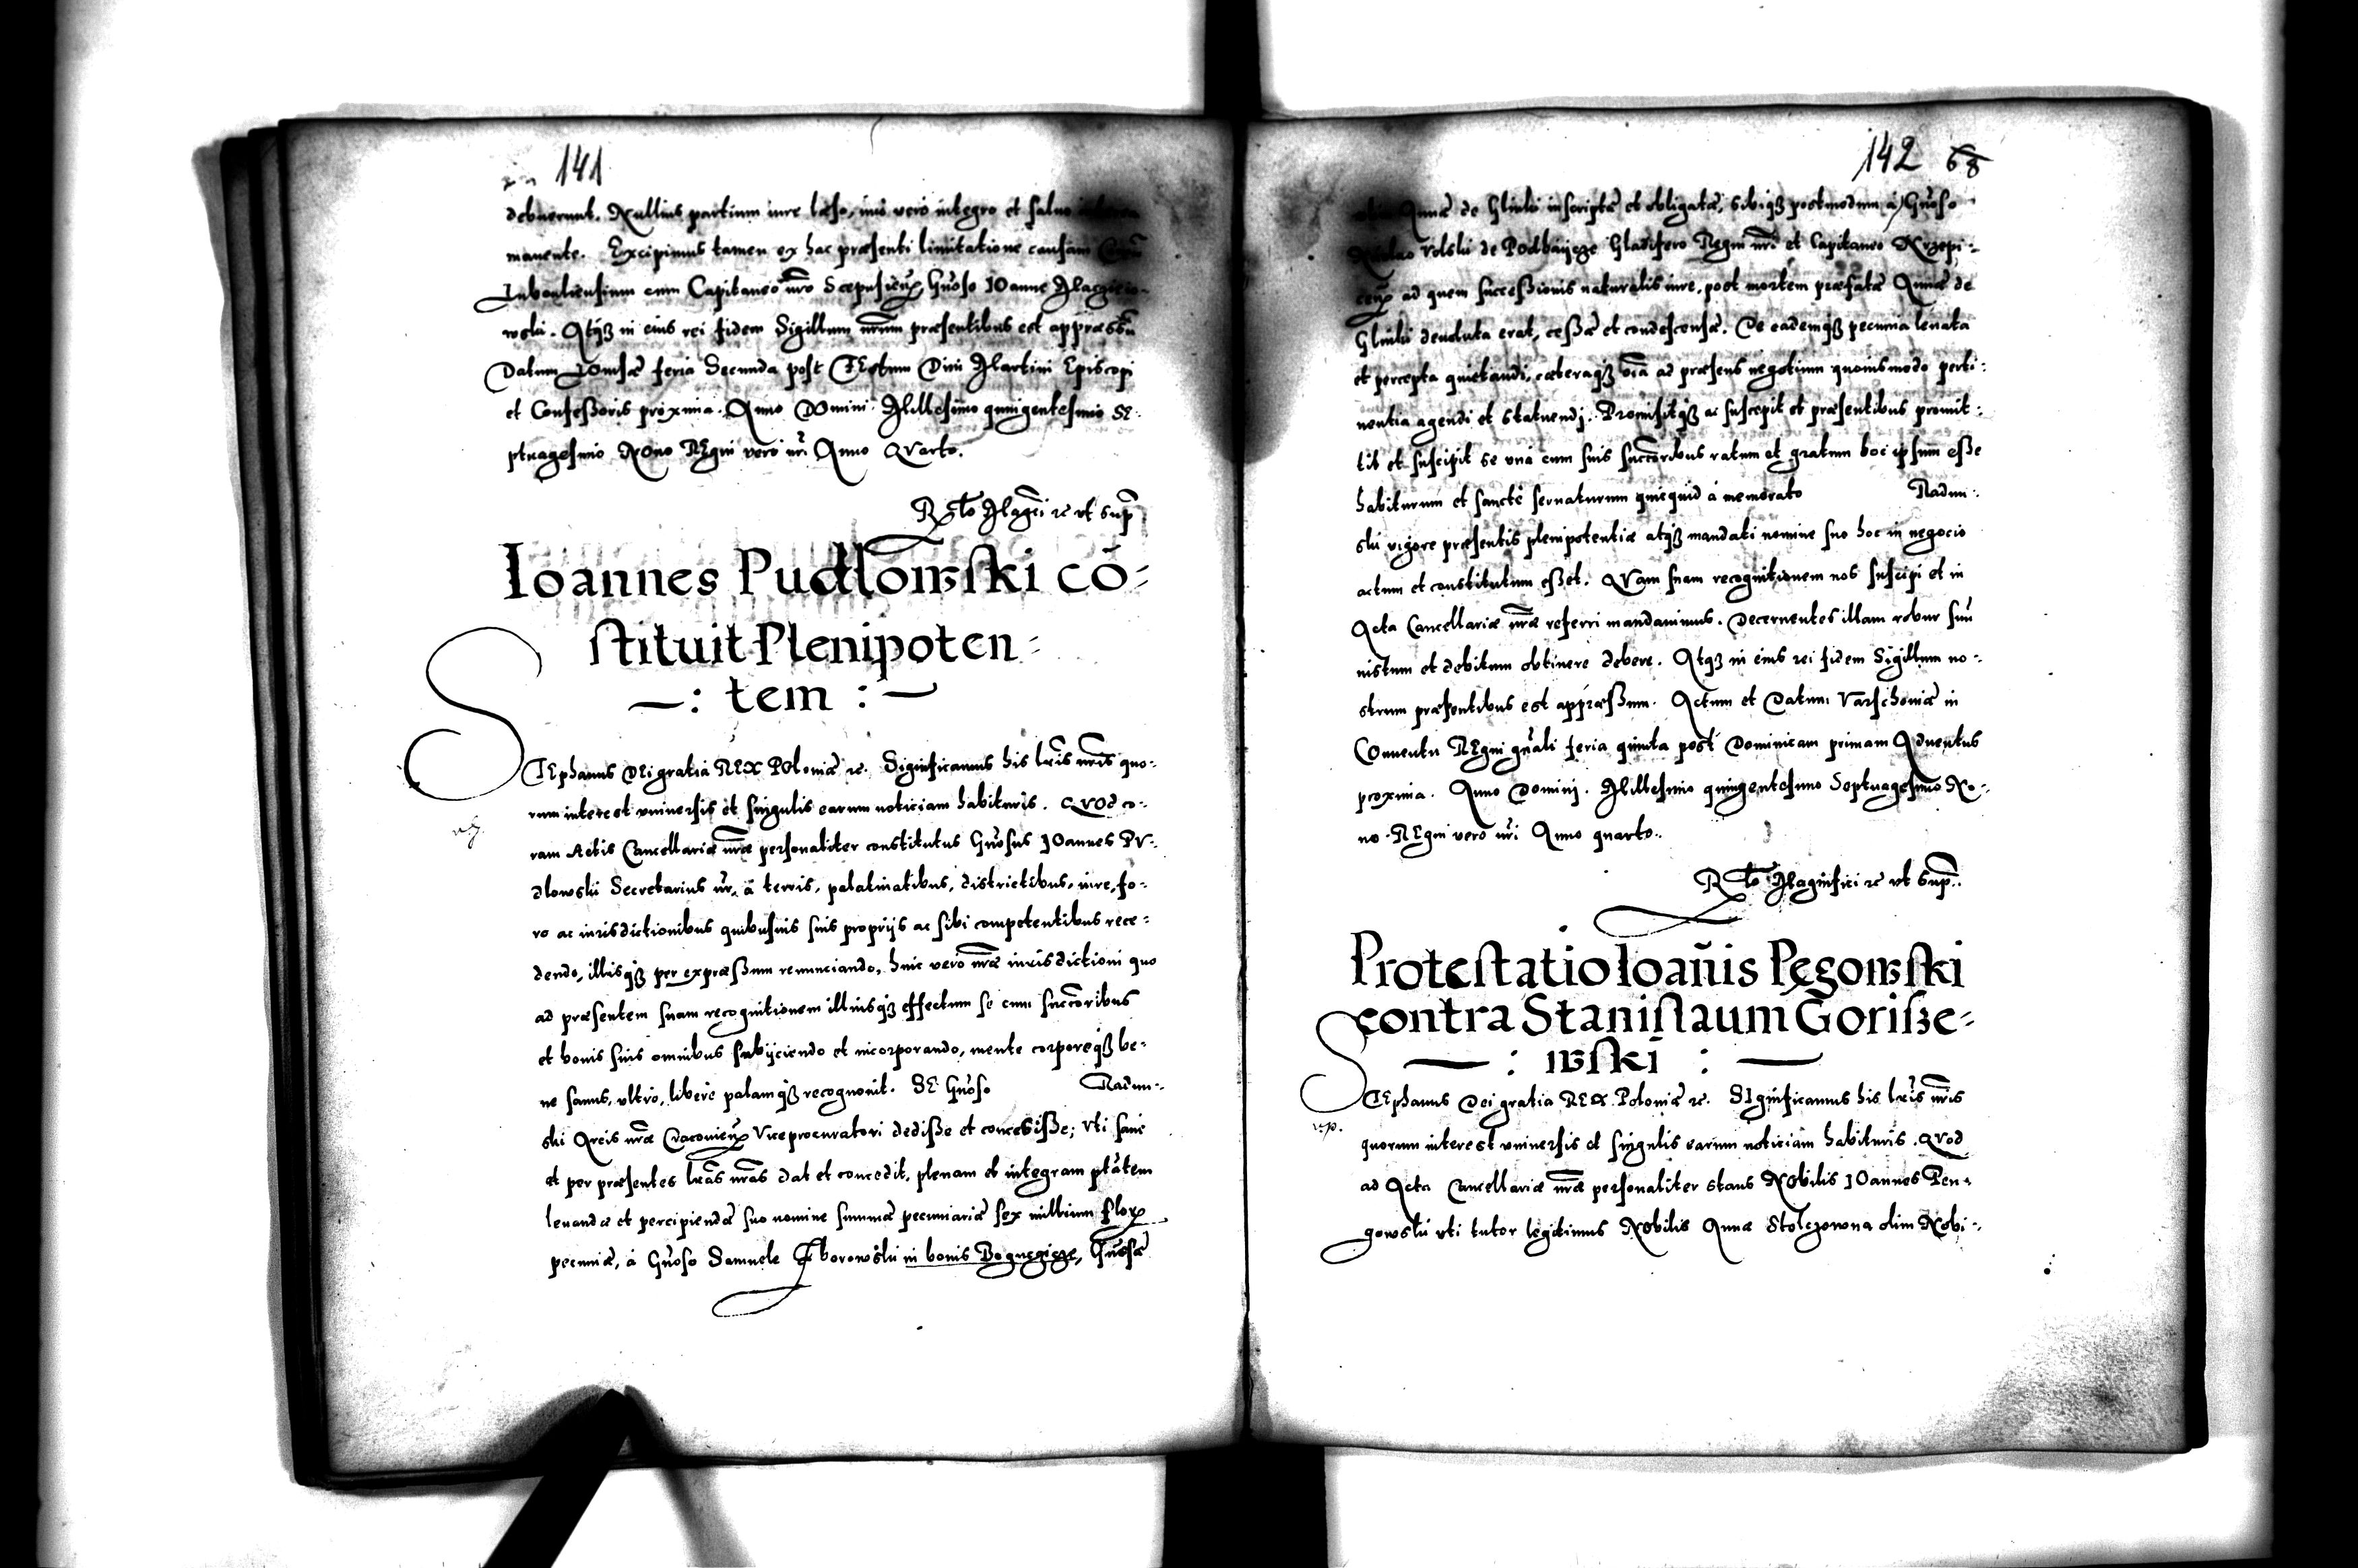 141
debuerunt. Nullius partium iure læso, imo vero integro et saluo
manente. Excipimus tamen ex hac præsenti limitatione causam
cum Capitaneo nr̃o Scepusien̄ Gn̄oso IOanne
wski. Atqʒ in eius rei fidem Sigillum nr̃um præsentibus est appressū
Datum feria Secunda post FEstum Diui Martini Episcopi
et Confeßoris proxima. Anno DOmini Millesimo quingentesimo SE-
ptuagesimo NOno REgni vero nr̃i Anno QVarto.
Rtō Magcī ꝛc vt sup̄
Ioannes Pudłowski cō-
stituit Plenipoten-
—: tem :—
STEphanus DEi gratia REX POloniæ ꝛc. Significamus his lr̃is nr̃is quo-
rum interest vniuersis et singulis earum noticiam habituris. QVOd co-
ram Actis Cancellariæ nr̃æ personaliter constitutus Gn̄osus IOannes PV-
dlowski Secretarius nr̃, à terris, palatinatibus, districtibus, iure, fo-
ro ac iurisdictionibus quibusuis suis proprijs ac sibi competentibus rece-
dendo, illisqʒ per expræßum renunciando, huic vero nr̃æ iurisdictioni quo
ad præsentem suam recognitionem illiusqʒ effectum se cum succōribus
et bonis suis omnibus subijciendo et incorporando, mente corporeqʒ be-
ne sanus, vltro, libere palamqʒ recognouit. SE Gn̄oso Radun-
ski Arcis nr̃æ Cracouien̄ Viceprocuratori dediße et conceßiße; vti sane
et per præsentes lr̃as nr̃as dat et concedit, plenam et integram ptātem
leuandæ et percipiendæ suo nomine summæ pecuniariæ sex millium flor
pecuniæ, à Gn̄oso Samuele Zborowski in bonis Gn̄osæ
142 68
Annæ de Glinki inscriptæ et obligatæ, sibiqʒ postmodum à Gn̄oso
Volski de Podhaycze Gladifero Regni nr̃i et Capitaneo Krzepi-
cen̄ ad quem succeßionis naturalis iure, post mortem præfatæ Annæ de
Glinki deuoluta erat, ceßæ et condescensæ. De eademqʒ pecunia leuata
et percepta quietandi, cæteraqʒ oīa ad præsens negotium quouismodo perti-
nentia agendi et statuendj. Promisitqʒ ac suscepit et præsentibus promit-
tit et suscipit se vnà cum suis succōribus ratum et gratum hoc ipsum eße
habiturum et sancte seruaturum quicquid à memorato Radun-
ski vigore præsentis plenipotentiæ atqʒ mandati nomine suo hoc in negocio
actum et constitutum eßet. QVam suam recognitionem nos suscipi et in
Acta Cancellariæ nr̃æ referri mandauimus. Decernentes illam robur suū
iustum et debitum obtinere debere. Atqʒ in eius rei fidem Sigillum no-
strum præsentibus est appræßum. Actum et Datum Varschouiæ in
COnuentu REgni gn̄ali feria quinta post Dominicam primam Aduentus
proxima. Anno Dominj. Millesimo quingentesimo Septuagesimo No-
no REgni vero nr̃i Anno quarto.
Rtō Magnifici ꝛc vt Sup̄.
Protestatio Ioan̄is Pęgowski
contra Stanislaum Gorisze-
—: wski :—
STEphanus Dei gratia REX Poloniæ ꝛc. SIgnificamus his lr̃is nr̃is
quorum interest vniuersis et singulis earum noticiam habituris. QVod
ad Acta Cancellariæ nr̃æ personaliter stans NObilis IOannes Pen-
gowski vti tutor legitimus NObilis Annæ Stolczowna olim Nobi-